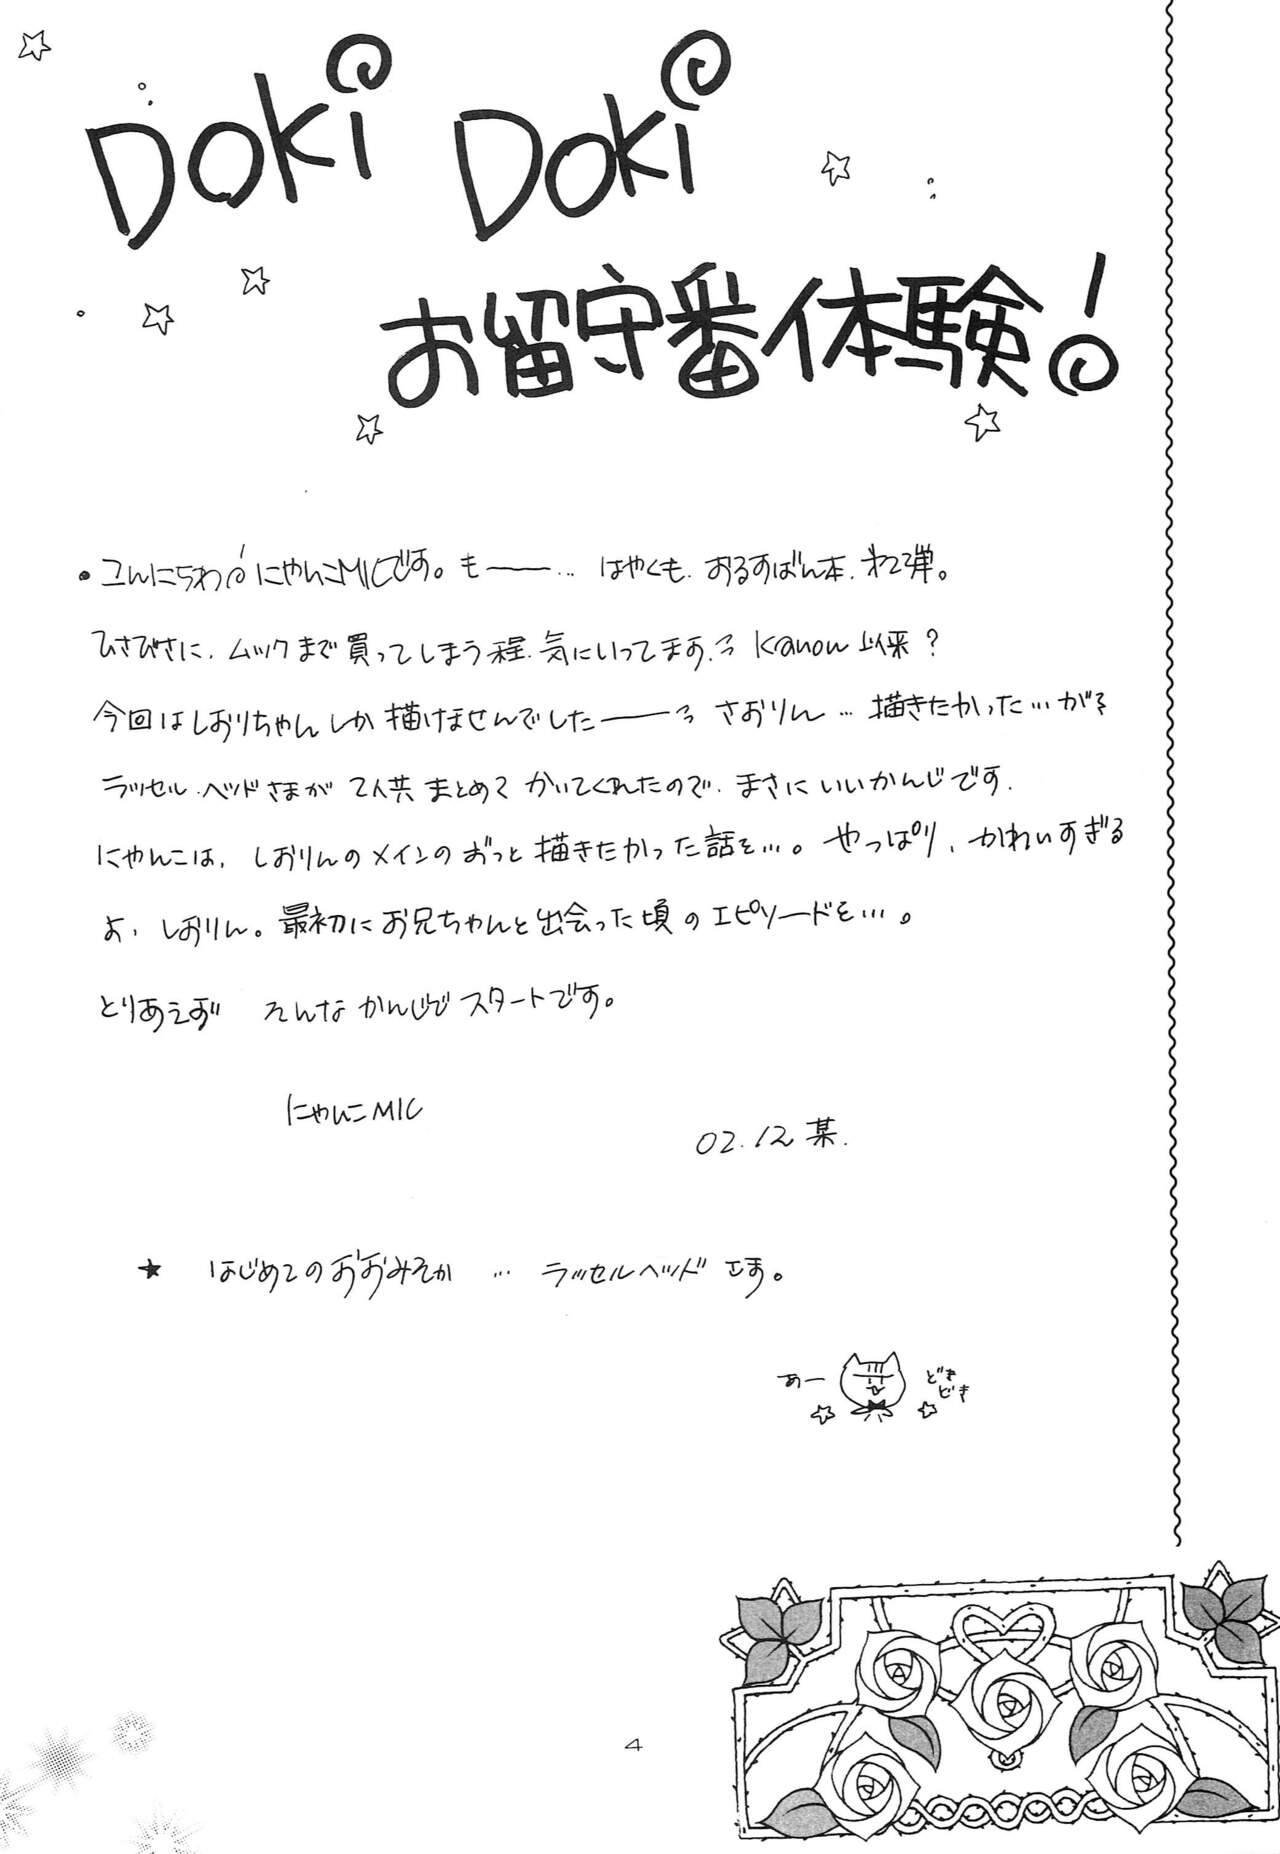 DOKi DOKi
お留守番体験!
・こんにちわ!にやんこMICです。も――…はやくも、おるすばん本、オ2弾。
ひさびさに、ムックまで買ってしまう程、気にいってます。 Kanon以来?
今回はしおりちゃんしか描けませんでした―― さおりん…描きたかった…がそ
ラッセル・ヘッドさまが 2人共まとめて かいてくれたので、まさにいいかんじです。
にやんこは、しおりんのメインのずっと描きたかった話を…。やっぱり、かわいすぎる
よ、しおりん。最初にお兄ちゃんと出会った頃のエピソードを…。
とりあえず そんなかんじでスタートです。
にやんこMIC
02.12某.
★ はじめてのおおみそか … ラッセルヘッドさま。
あー どき
どき
4